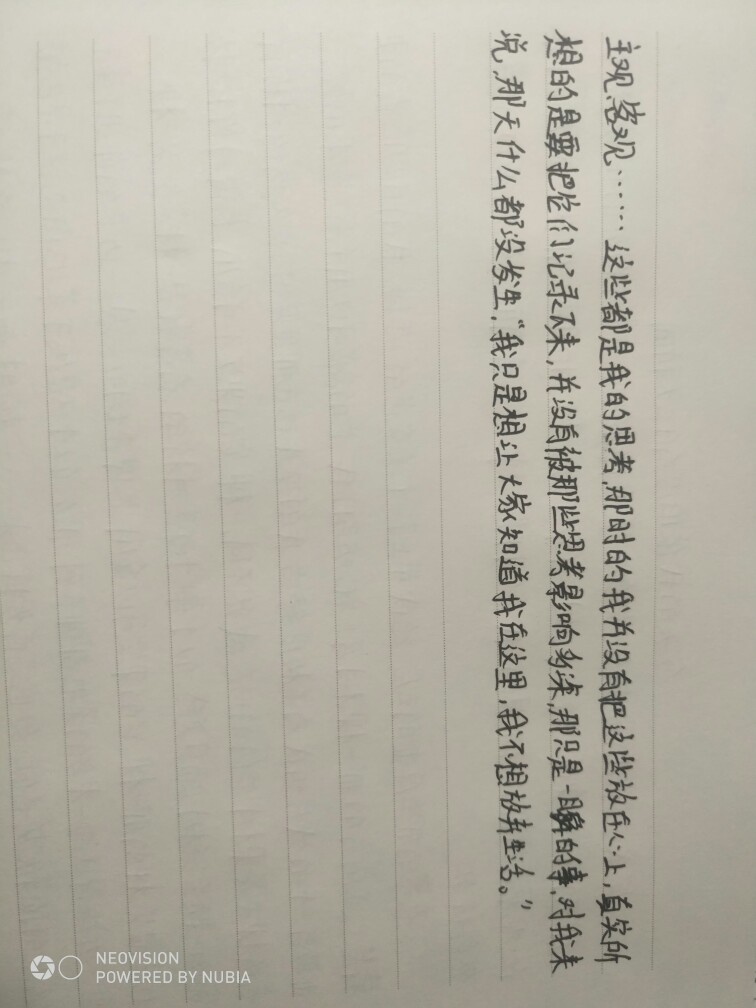 主观、客观……这些都是我的思考,那时的我并没有把这些放在心上,真实所
想的是要把它们记录下来,并没有被那些思考影响多深,那只是一瞬的事,对我来
说,那天什么都没发生,“我只是想让大家知道我在这里,我不想放弃生活。”
NEOVISION
POWERED BY NUBIA